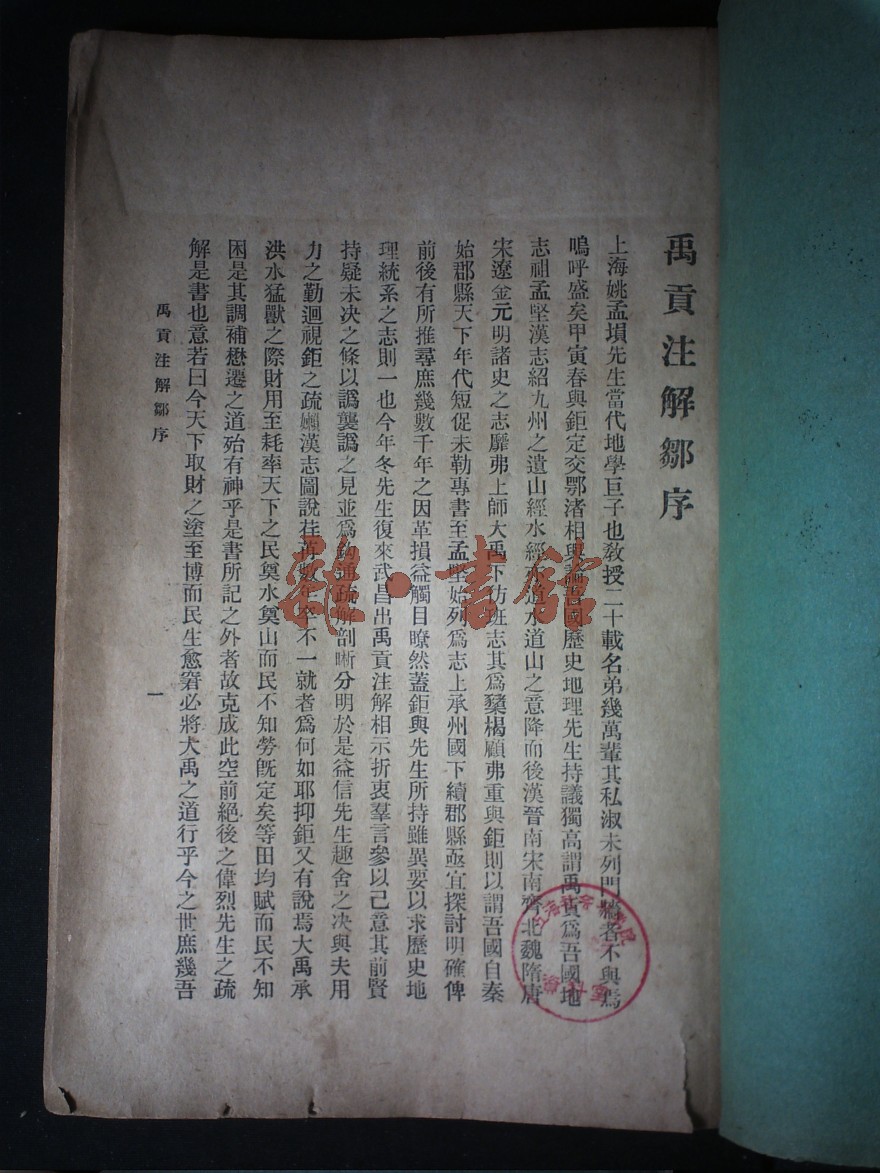 禹貢注解鄒序
上海姚孟塤先生當代地學巨子也敎授二十載名弟幾萬輩其私淑未列門牆者不與焉
嗚呼盛矣甲寅春與鉅定交鄂渚相與論吾國歷史地理先生持議獨高謂禹貢爲吾國地
志祖孟堅漢志紹九州之遺山經水經亦道水道山之意降而後漢晉南宋南齊北魏隋唐
宋遼金元明諸史之志靡弗上師大禹下仿班志其爲楬顧弗重與鉅則以謂吾國自秦
始郡縣天下年代短促未勒專書至孟堅始列爲志上承州國下續郡縣亟宜探討明確俾
前後有所推尋庶幾數千年之因革損益觸目瞭然蓋鉅與先生所持雖異要以求歷史地
理統系之志則一也今年冬先生復來武昌出禹貢注解相示折衷羣言參以己意其前賢
持疑未决之條以譌襲譌之見並爲鈎通疏解剖晰分明於是益信先生趣舍之决與夫用
力之勤迴視鉅之疏嬾漢志圖說荏苒數年卒不一就者爲何如耶抑鉅又有說焉大禹承
洪水猛獸之際財用至耗率天下之民奠水奠山而民不知勞旣定矣等田均賦而民不知
困是其調補懋遷之道殆有神乎是書所記之外者故克成此空前絕後之偉烈先生之疏
解是書也意若曰今天下取財之塗至博而民生愈窘必將大禹之道行乎今之世庶幾吾
禹貢注解鄒序
一
雜·書館